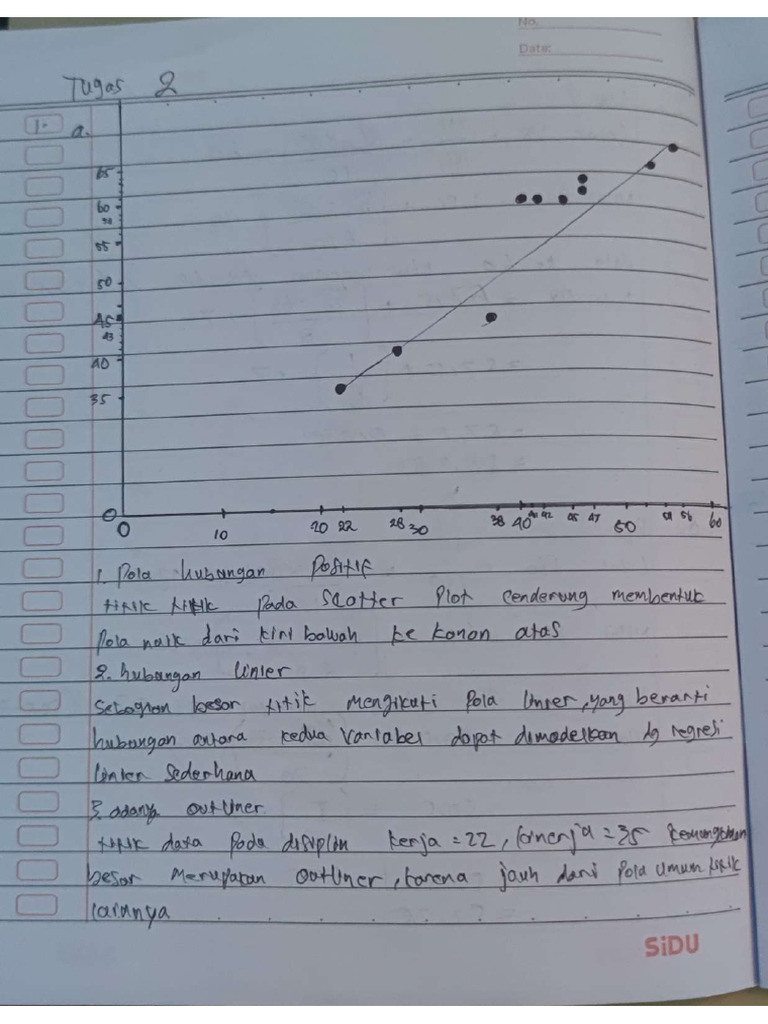 No.
Date:
Tugas 2
1. a.
65
60
58
55
50
45
43
40
35
0
0 10 20 22 28 30 38 40 42 45 47 50 54 56 60
1. Pola hubungan Positif
titik titik pada scatter Plot cenderung membentuk
Pola naik dari kiri bawah ke kanan atas
2. hubungan linier
Sebagian besar titik mengikuti pola linier, yang berarti
hubungan antara kedua variabel dapat dimodelkan dg regresi
linier sederhana
3. adanya outliner
titik data pada disiplin kerja = 22, kinerja = 35 kemungkinan
besar merupakan outliner, karena jauh dari pola umum titik
lainnya
SiDU